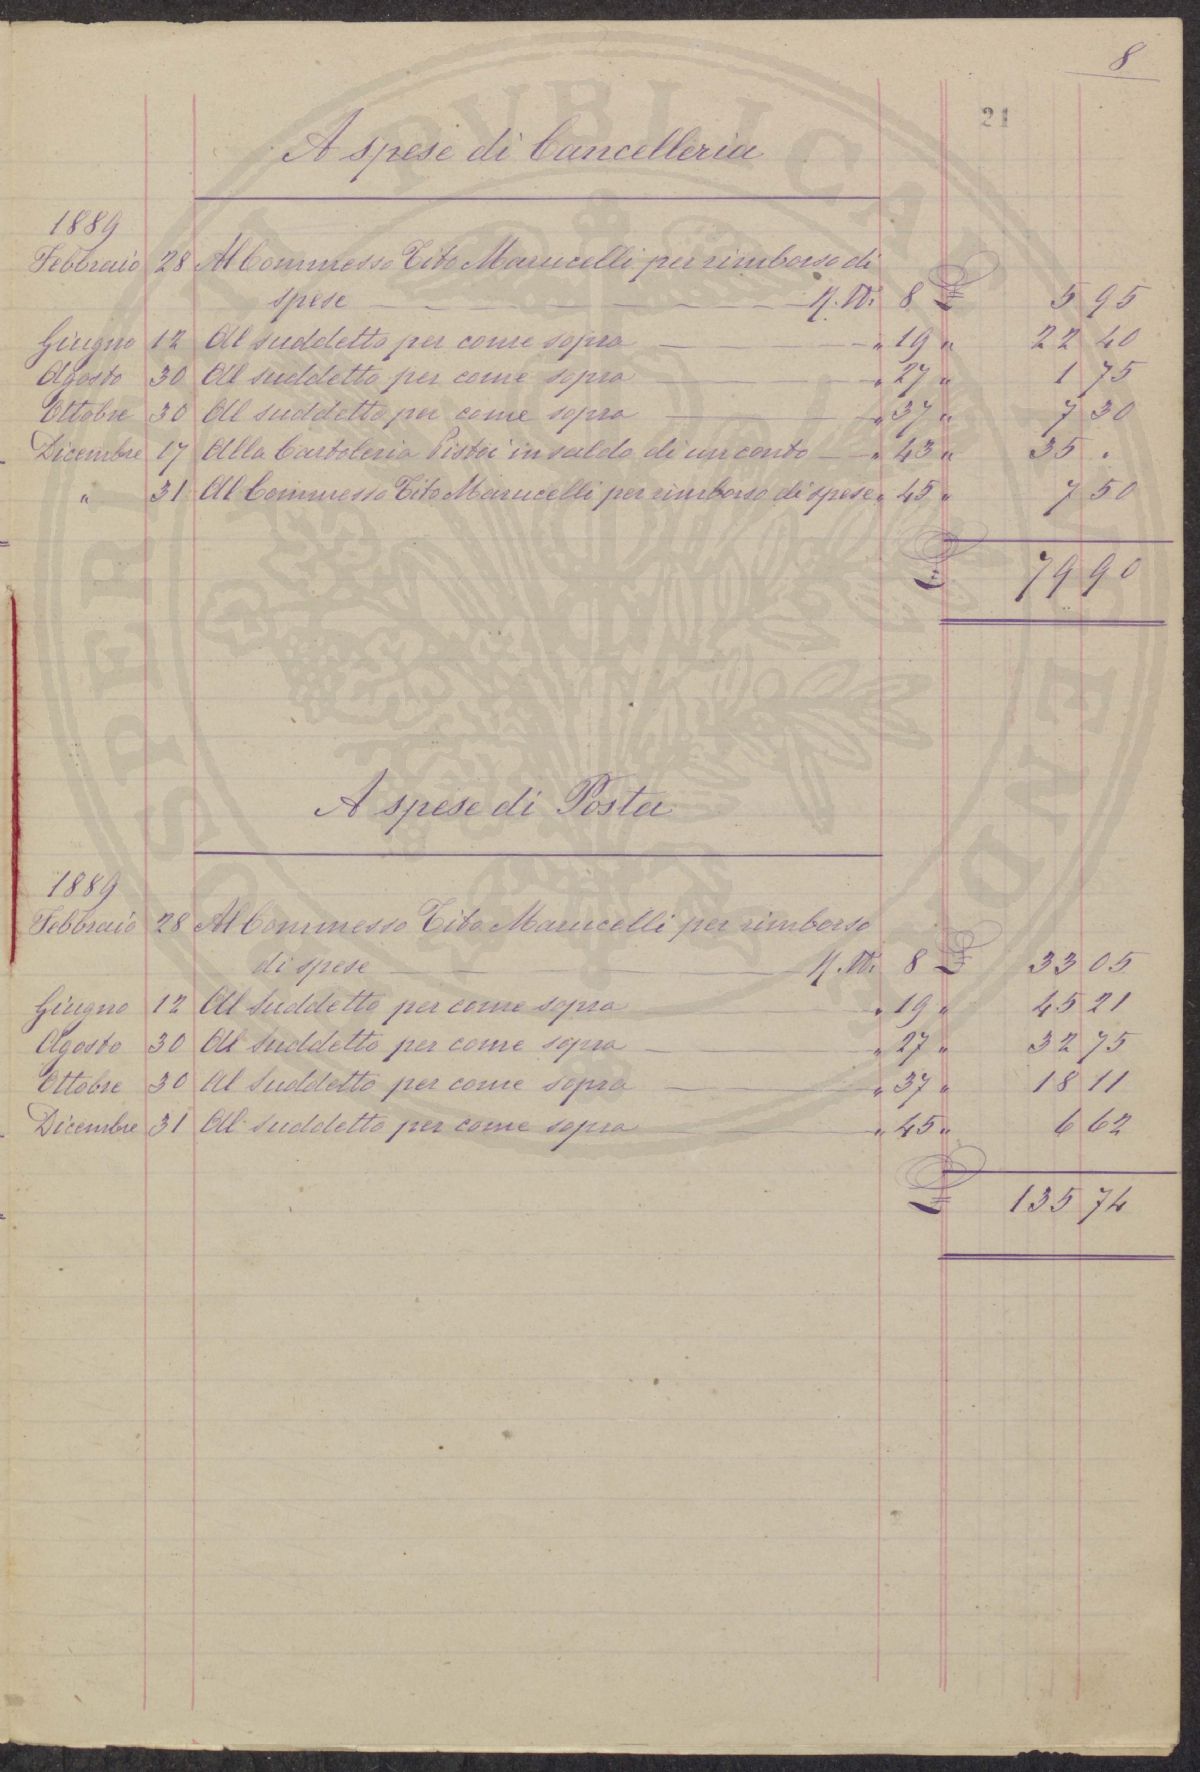 8
21
A spese di Cancelleria
1889
Febbraio 28 Al Commesso Tito Marucelli per rimborso di
spese N. M. 8 £ 5 95
Giugno 12 Al suddetto per come sopra " 19 " 22 40
Agosto 30 Al suddetto per come sopra " 27 " 1 75
Ottobre 30 Al suddetto per come sopra " 37 " 7 30
Dicembre 17 Alla Cartoleria Pistoi in saldo di un conto " 43 " 35 "
" 31 Al Commesso Tito Marucelli per rimborso di spese " 45 " 7 50
£ 79 90
A spese di Posta
1889
Febbraio 28 Al Commesso Tito Marucelli per rimborso
di spese N. M. 8 £ 33 05
Giugno 12 Al suddetto per come sopra " 19 " 45 21
Agosto 30 Al suddetto per come sopra " 27 " 32 75
Ottobre 30 Al suddetto per come sopra " 37 " 18 11
Dicembre 31 Al suddetto per come sopra " 45 " 6 62
£ 135 74